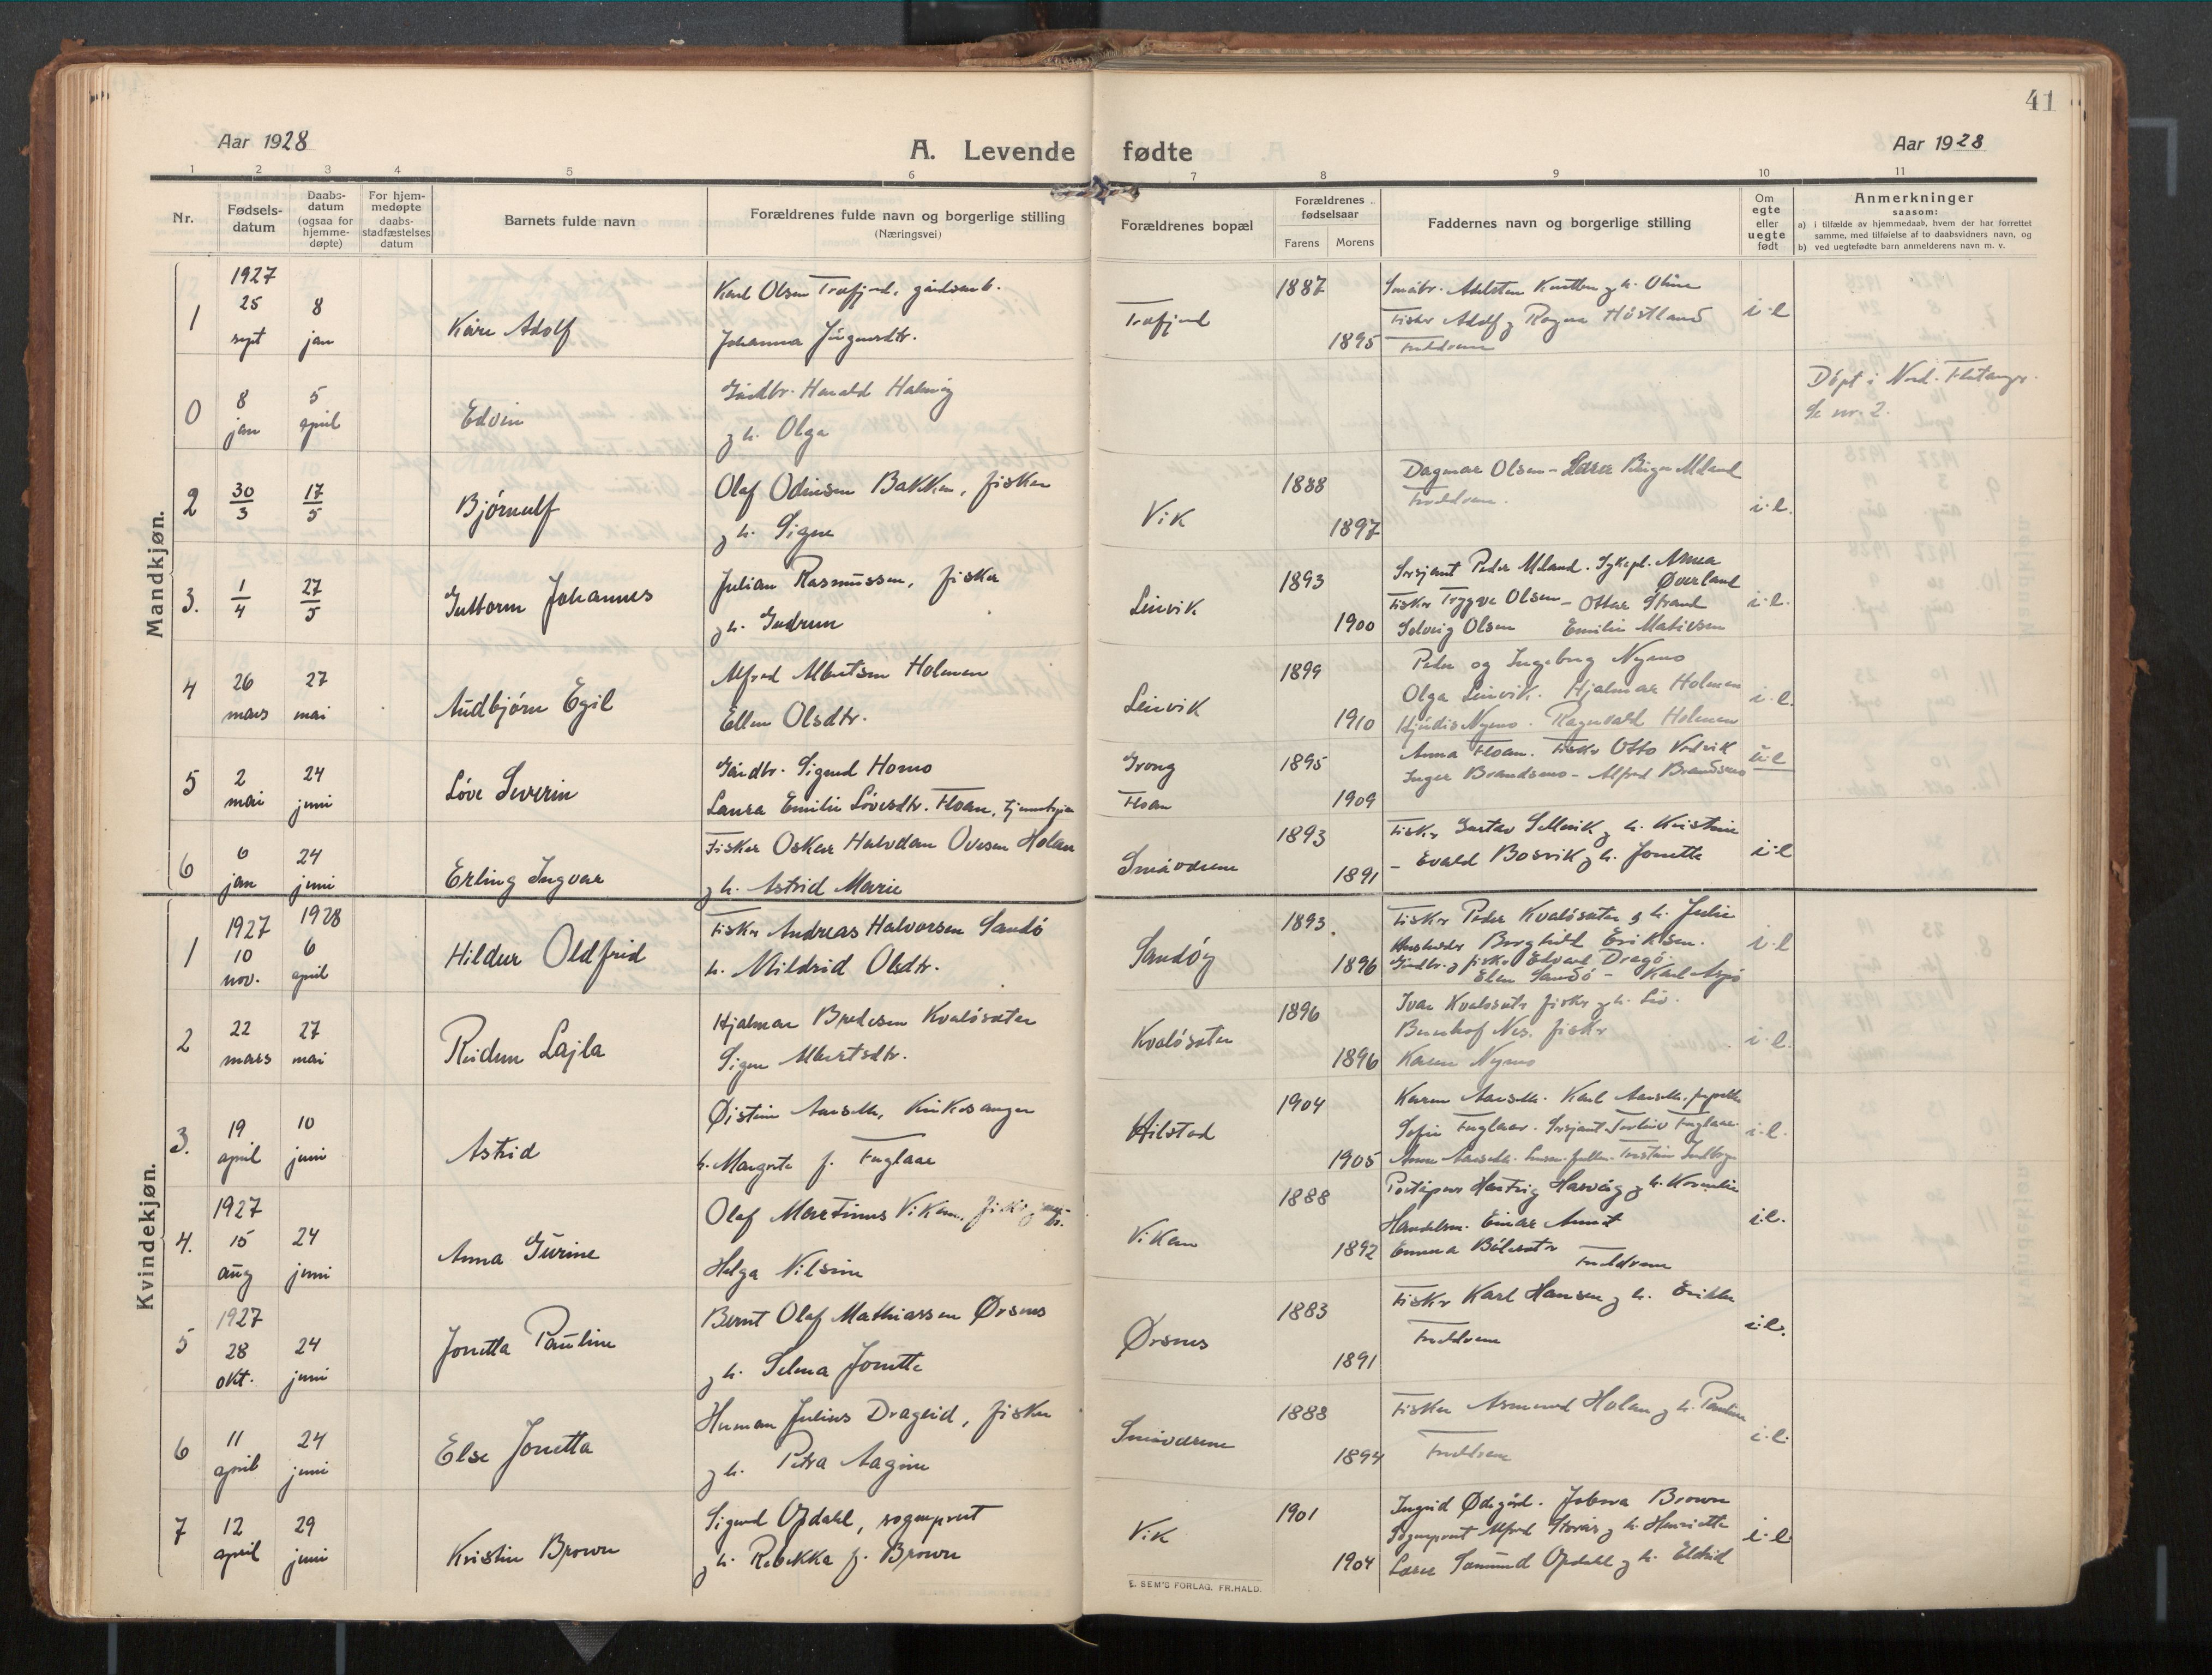 41
Aar 1928
A. Levende fødte
Aar 1928
1 2 3 4 5 6 7 8 9 10 11
Nr.
Fødsels-
datum
Daabs-
datum
(ogsaa for
hjemme-
døpte)
For hjem-
medøpte
daabs-
stadfæstelses
datum
Barnets fulde navn
Forældrenes fulde navn og borgerlige stilling
(Næringsvei)
Forældrenes bopæl
Forældrenes
fødselsaar
Farens Morens
Faddernes navn og borgerlige stilling
Om
egte
eller
uegte
født
Anmerkninger
saasom:
a) i tilfælde av hjemmedaab, hvem der har forrettet
samme, med tilføielse af to daabsvidners navn, og
b) ved uegtefødte barn anmelderens navn m. v.
Mandkjøn.
1
1927
25 sept
8 jan
Kåre Adolf
Karl Olsen
Johanna
1887
1895
Oline
Fisker Adolf g Ragna Høstland
Foreldrene
i.l
0
8 jan
5 april
Edvin
Gårdbr. Harald
g h. Olga
Døpt i Nord-Flatanger.
Se nr. 2.
2
30/3
17/5
Bjørnulf
Olaf Odinsen Bakken, fisker
g h. Signe
Vik
1888
1897
Dagmar Olsen - Lærer Birger Meland
Foreldrene.
i.l.
3.
1/4
27/5
Guttorm Johannes
Julian Rasmussen, fisker
g h. Gudrun
Leirvik
1893
1900
Sersjant Peder Meland. Sykepl. Anna
Øverland
Fisker Trygve Olsen - Ottar Strand
Solveig Olsen Emilie Mativsen
i.l.
4
26 mars
27 mai
Audbjørn Egil
Alfred Albertsen Holmen
Ellen Olsdtr.
Leirvik
1899
1910
Peder og Ingeborg Nymo
Olga Leirvik. Hjalmar Holmen
Hjørdis Nymo. Ragnvald Holmen
i.l.
5
2 mai
24 juni
Løve Severin
Gårdbr. Sigurd Homo
Laura Emilie Løvesdtr. Floan,
Grong
Floan
1895
1909
Anna Floan. Fisker Otto
Inger Brandsmo - Alfred Brandsmo
u.l
6
6 jan
24 juni
Erling Ingvar
Fisker Oskar Halvdan Ovesen Holan
g h. Astrid Marie
Småværene
1893
1891
Fisker Gustav g h. Kristine
- Evald Bosvik g h. Jonette
i.l
Kvindekjøn.
1
1927
10 nov.
1928
6 april
Hildur Oldfrid
Fisker Andreas Halvorsen Sandø
h. Mildrid Olsdtr.
Sandøy
1893.
1896
Fisker Peder Kvaløsæter g h. Julie
Borghild Eriksen.
Gårdbr. g fisker Edvard Dragø.
Elen Sandø - Karl
i.l
2
22 mars
27 mai
Reidun Lajla
Hjalmar Bredesen Kvaløsæter
Signe Albertsdtr.
Kvaløsæter
1896
1896
Ivar Kvaløsæter fisker g h. Liv.
Bernhof Nes. fisker
Karen Nymo
i.l.
3.
19 april
10 juni
Astrid
Øistein Aarseth, kirkesanger
h. Margrete f. Fuglaar
Hilstad
1904
1905
Karen Aarseth. Karl Aarseth,
Sofie Fuglaar. Sersjant Fuglaar
Anna Aarseth.
i.l.
4.
1927
15 aug
24 juni
Anna Gurine
Olaf Martinus Viken, fisker g
Helga Nilsine
Viken
1888
1892
Hartvig Hasvåg g h. Kornelie
Handelsm. Einar
Emma
Foreldrene
i.l.
5
1927
28 okt.
24 juni
Jonetta Pauline
Bernt Olaf Mathiassen Ørsnes
g h. Selma Jonette
Ørsnes
1883
1891
Fisker Karl Hansen g h. Erikka
Foreldrene
i.l.
6
11 april
24 juni
Else Jonetta
Herman Julius Drageid, fisker
g h. Petra Aagine
Småværene
1888
1894
Fisker Asmund Holan g h. Pauline
Foreldrene
i.l.
7
12 april
29 juni
Kristin Brown
Sigurd Opdahl, sogneprest
g h. Rebekka f. Brown
Vik
1901
1904
Ingrid Ødegård. Brown
Sogneprest Alfred Storås g h. Henriette
Lærer Samund Opdahl g h. Eldrid
i.l.
E. SEM'S FORLAG, FR.HALD.